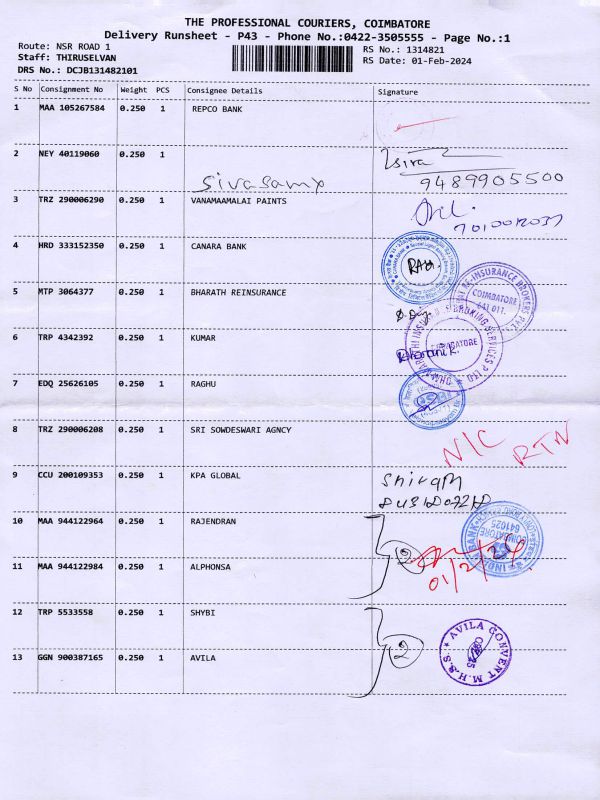 THE PROFESSIONAL COURIERS, COIMBATORE
Delivery Runsheet - P43 - Phone No.:0422-3505555 - Page No.:1
Route: NSR ROAD 1
RS No.: 1314821
Staff: THIRUSELVAN
RS Date: 01-Feb-2024
DRS No.: DCJB131482101
S No Consignment No Weight PCS Consignee Details Signature
1 MAA 105267584 0.250 1 REPCO BANK
2 NEY 40119060 0.250 1
sivasamy 9489905500
3 TRZ 290006290 0.250 1 VANAMAAMALAI PAINTS
4 HRD 333152350 0.250 1 CANARA BANK
5 MTP 3064377 0.250 1 BHARATH REINSURANCE
COIMBATORE
641 011.
6 TRP 4342392 0.250 1 KUMAR
7 EDQ 25626105 0.250 1 RAGHU
8 TRZ 290006208 0.250 1 SRI SOWDESWARI AGNCY
N/C RTN
9 CCU 200109353 0.250 1 KPA GLOBAL
10 MAA 944122964 0.250 1 RAJENDRAN
COIMBATORE
641025
11 MAA 944122984 0.250 1 ALPHONSA
2
12 TRP 5533558 0.250 1 SHYBI
2
AVILA CONVENT M.H.S.S.
13 GGN 900387165 0.250 1 AVILA